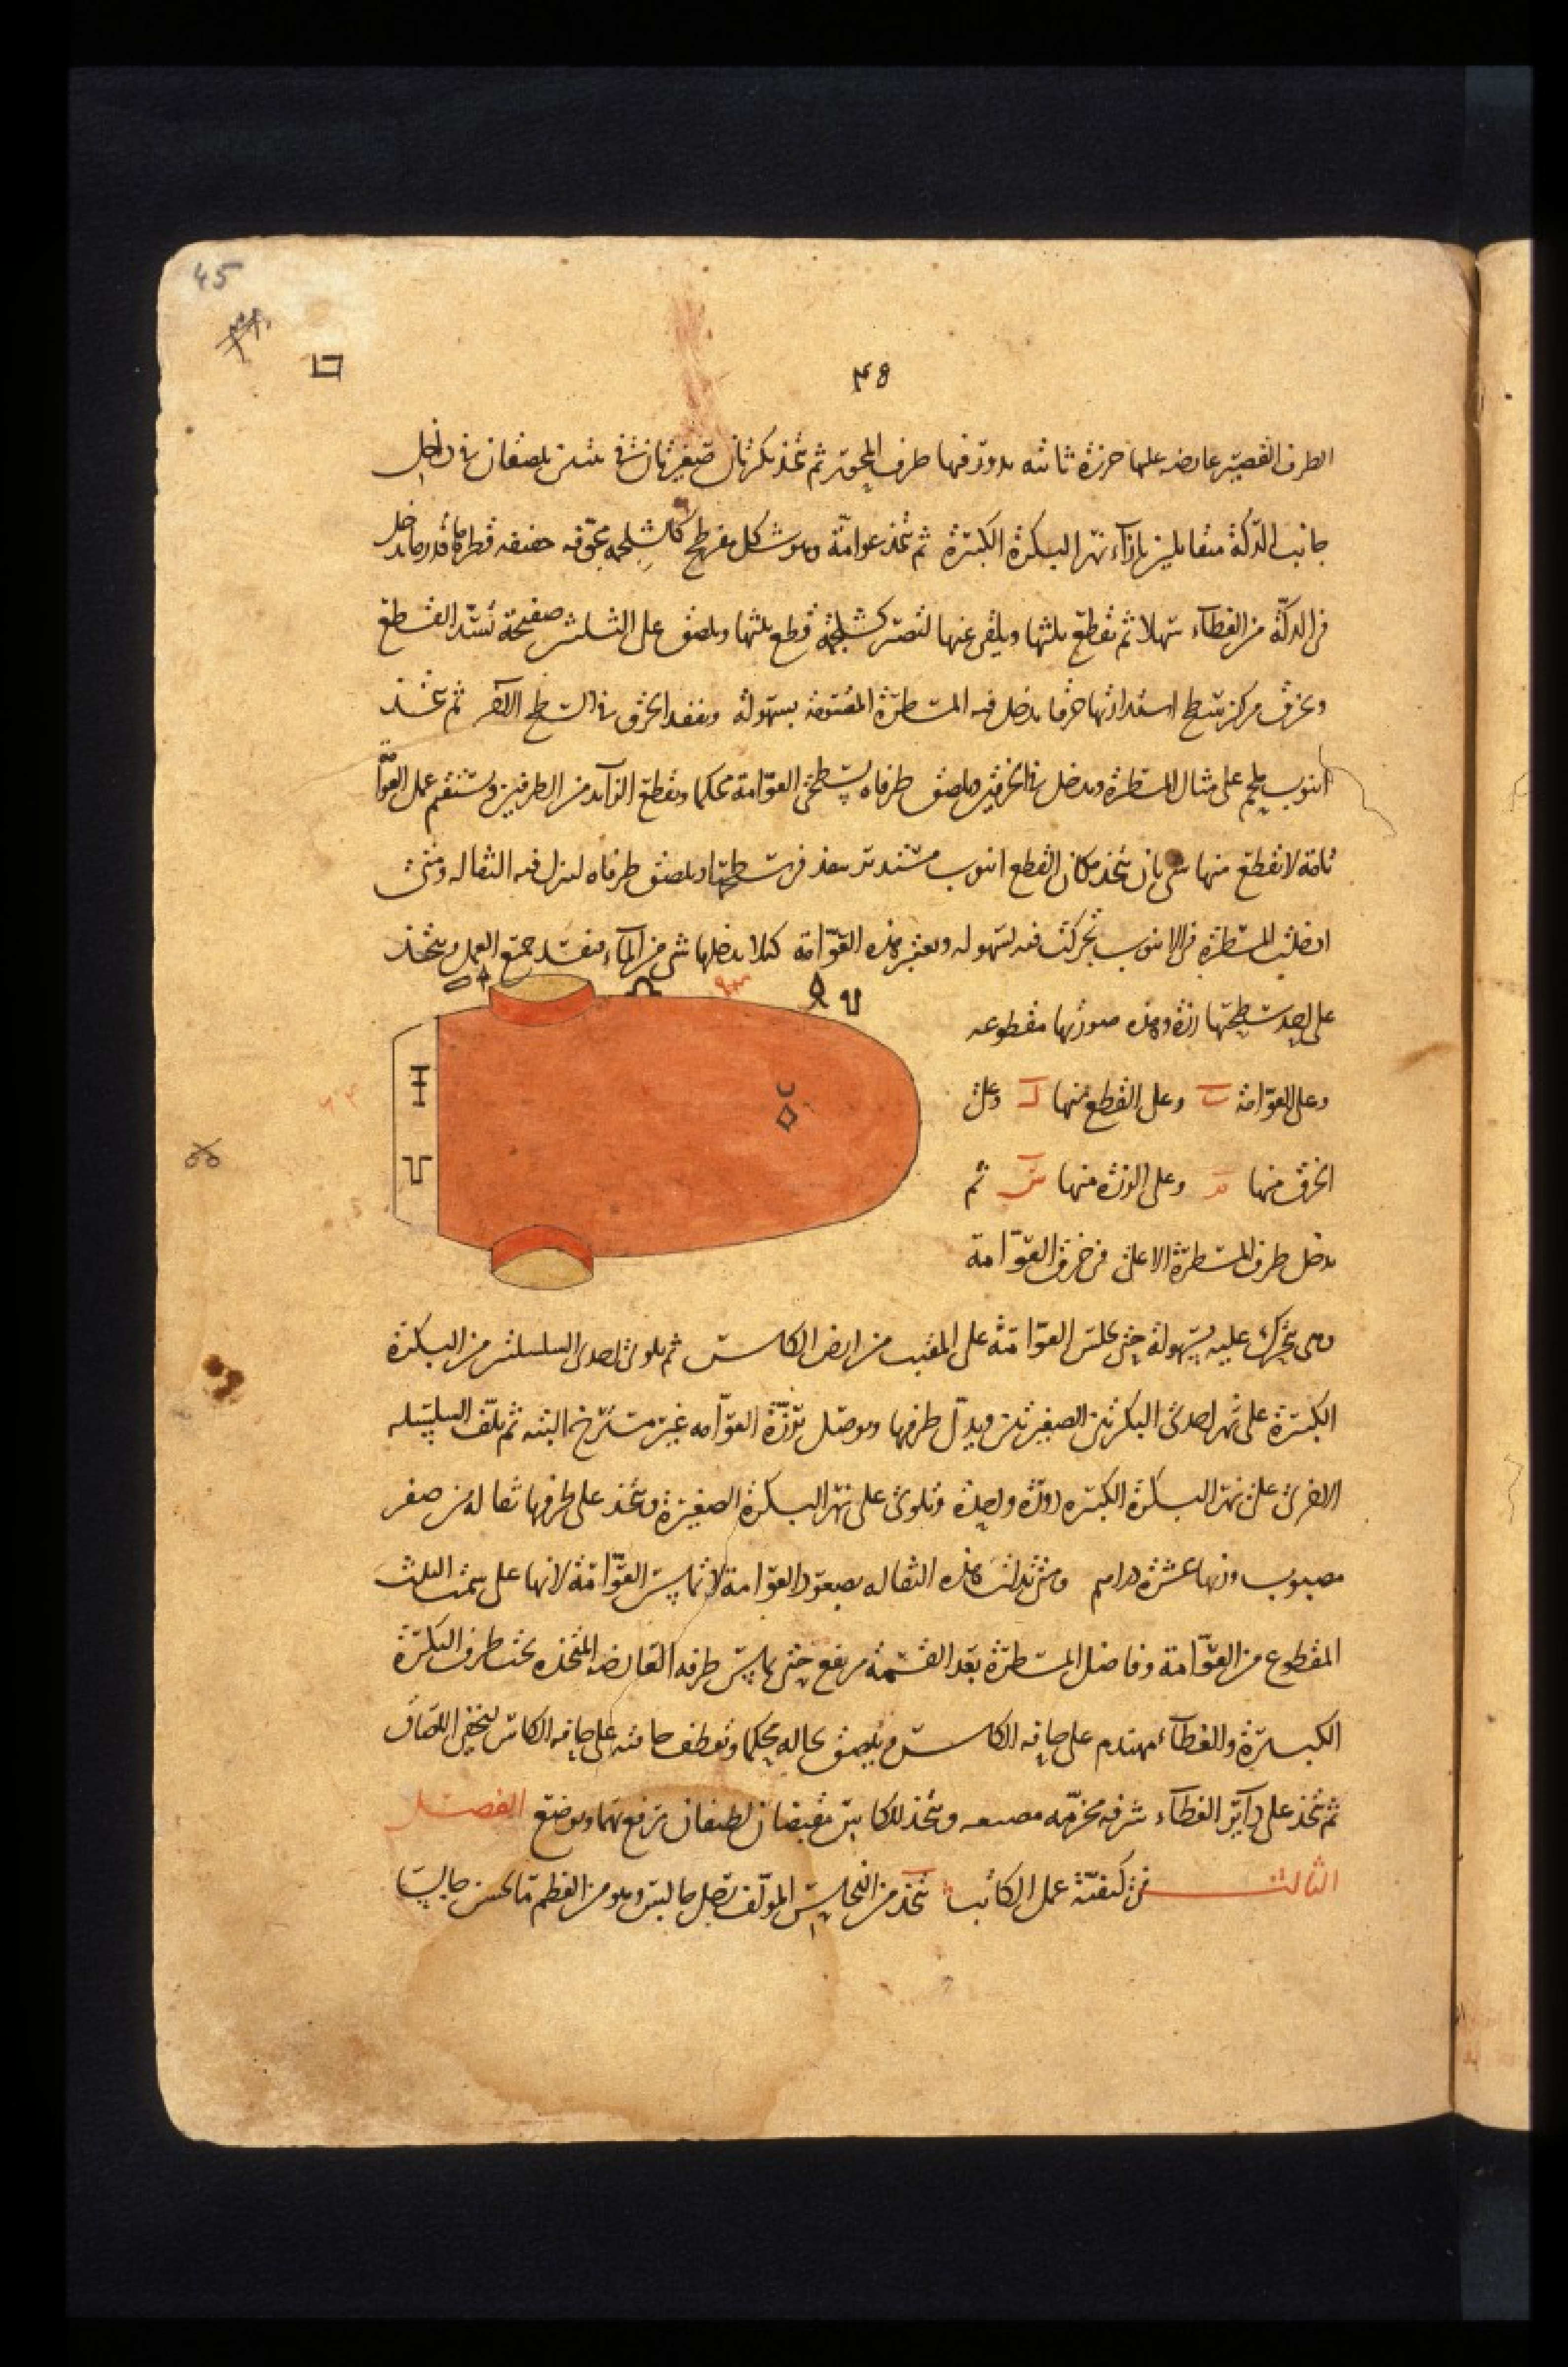 45
الطرف القصير عارضه عليها خرزة ثانية يدور فيها طرف المحور ثم تتخذ بكرتان صغيرتان في بيتين يلصقان في داخل
جانب الدكة متقابلين بازاء نهر البكرة الكبيرة ثم تتخذ عوامة وهو شكل مفرطح كالشلجمه مجوفه خفيفه قطرها قدر ما يدخل
في الدكة من الغطاء سهلا ثم يقطع ثلثها ويلقى عنها لتصير كشلجمة قطع ثلثها ويلصق على الثلثين صفيحة تسد القطع
ويخرق مركز سطح استدارتها خرقا يدخل فيه المسطرة المقسومة بسهولة وينفذ الخرق في السطح الآخر ثم تتخذ
انبوب يلحم على مثال المسطرة ويدخل في الخرقين ويلصق طرفاه بسطحي العوامة محكما ويقطع الزايد من الطرفين ويستقيم عمل العوا
تامة لا يقطع منها شي بان يتخذ مكان القطع انبوب مستدير ينفذ في سطحيها ويلصق طرفاه لينزل فيه الثقاله ومتى
ادخلت المسطرة في الانبوب تحركت فيه بسهوله ويعتبر هذه العوامة كيلا يدخلها شي من الماء فيفسد جميع العمل ويتخذ
على احد سطحيها رزة وهذه صورتها مقطوعه
وعلى العوامة وعلى القطع منها وعلى
الخرق منها وعلى الرزة منها ثم
يدخل طرف المسطرة الاعلى في خرق العوامة
وهي تتحرك عليه بسهولة حتى تجلس العوامة على المغيب من ارض الكاس ثم يلوى احدى السلسلتين من البكرة
الكبيرة على نهر احدى البكرتين الصغيرتين ويدل طرفها ويوصل برزة العوامه غير مسترخ البته ثم تلف السلسله
الاخرى على نهر البكرة الكبيره دورة واحدة وتلوى على نهر البكرة الصغيرة ويتخذ على طرفها ثقاله من صفر
مصبوب وزنها عشرة دراهم ومتى تدلت هذه الثقاله بصعود العوامة لا تماس العوامة لانها على سمت الثلث
المقطوع من العوامة وفاضل المسطرة بعد القسمة مرتفع حتى يماس طرفه العارضه المتخذه تحت طرف البكرة
الكبيرة والغطاء مهندم على حافه الكاس ويلصق بحاله محكما ويعطف حافته على حافه الكاس ليخفى اللصاق
ثم يتخذ على داير الغطاء شرفه مخرمه ويتخذ للكاس مقبضان لطيفان يرفع بهما ويوضع الفصل
الثالث في كيفية عمل الكاتب يتخذ من النحاس المولف رجل جالس وهو من العظم ما يحسن جالسا